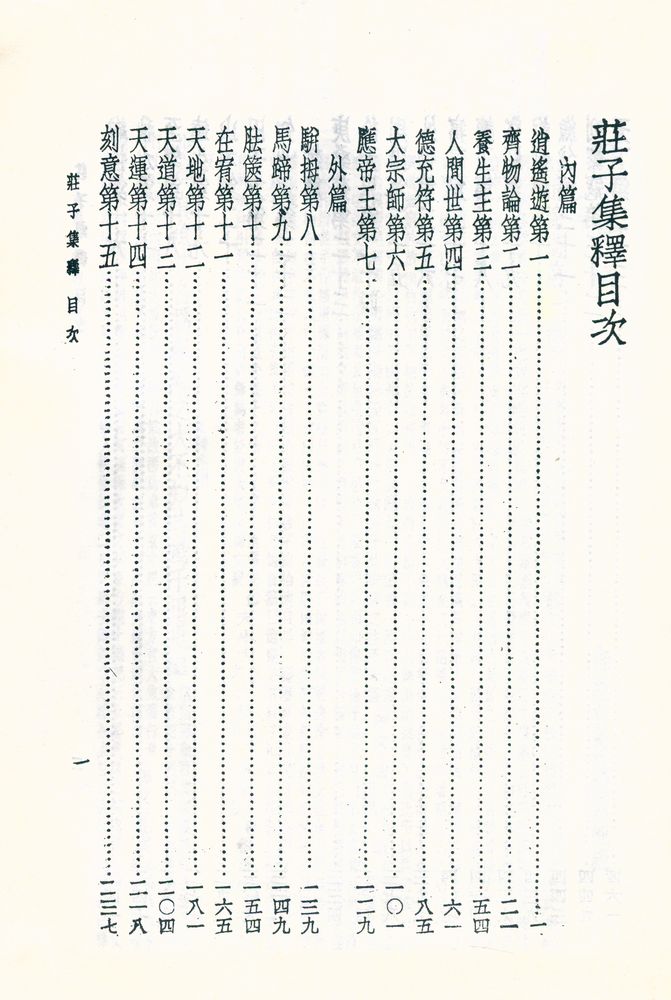 莊子集釋目次
內篇
逍遙遊第一……一
齊物論第二……二一
養生主第三……五四
人間世第四……六一
德充符第五……八五
大宗師第六……一〇一
應帝王第七……一二九
外篇
駢拇第八……一三九
馬蹄第九……一四九
胠篋第十……一五四
在宥第十一……一六五
天地第十二……一八一
天道第十三……二〇四
天運第十四……二一八
刻意第十五……二三七
莊子集釋 目次
一